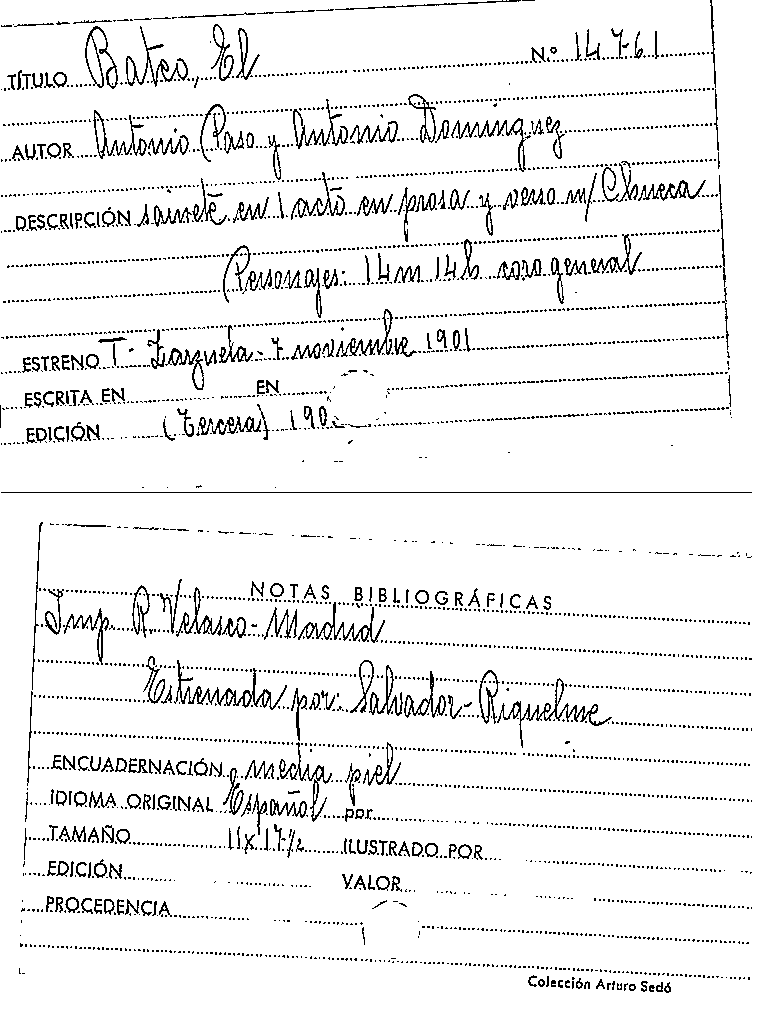 TÍTULO Bateo, El Nº 14761
AUTOR Antonio Paso y Antonio Dominguez
DESCRIPCIÓN sainete en 1 acto en prosa y verso m/ Chueca
Personajes: 14m 14h coro general
ESTRENO T. Zarzuela - 7 noviembre 1901
ESCRITA EN EN
EDICIÓN (Tercera)
NOTAS BIBLIOGRÁFICAS
Imp. R. Velasco - Madrid
Estrenada por: Salvador - Riquelme
ENCUADERNACIÓN media piel
IDIOMA ORIGINAL Español por
TAMAÑO 11 x 17 1/2 ILUSTRADO POR
EDICIÓN VALOR
PROCEDENCIA
Colección Arturo Sedó